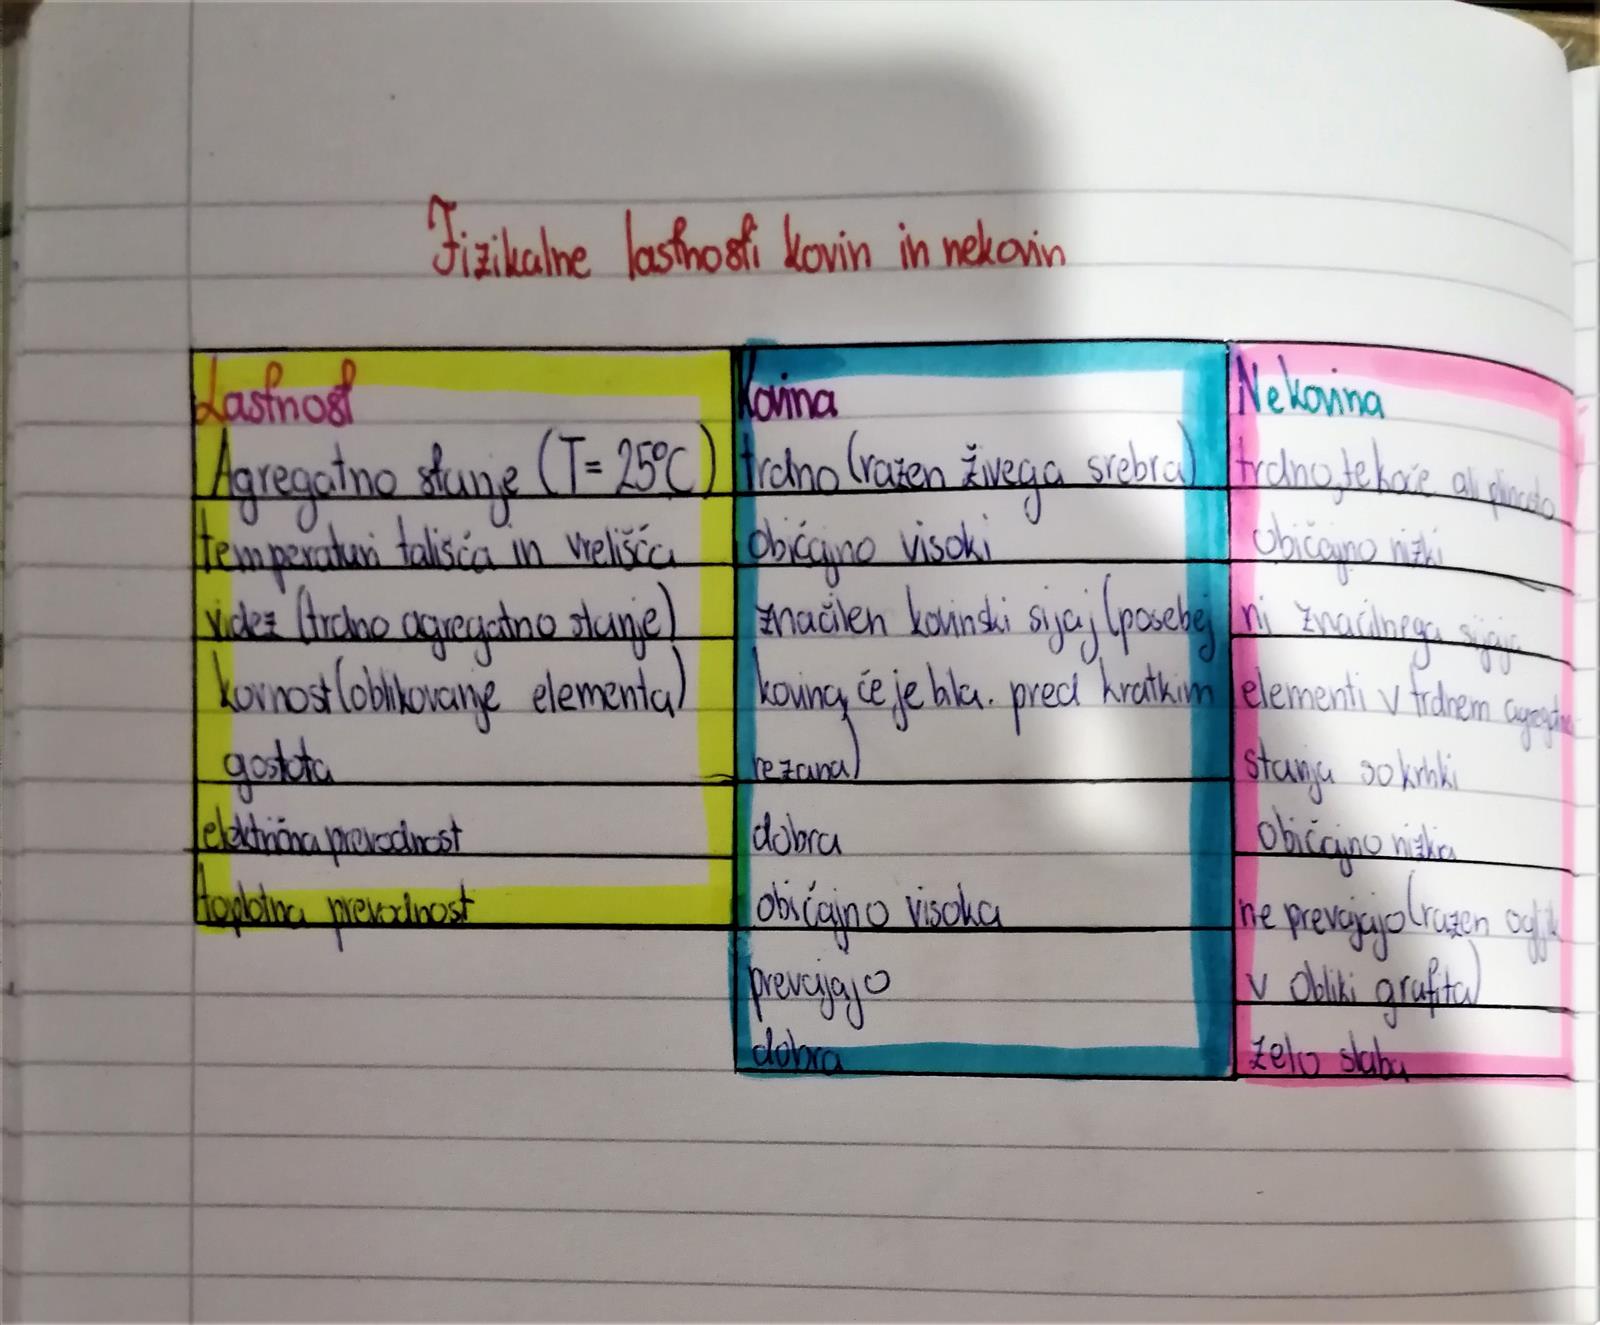 Fizikalne lastnosti kovin in nekovin
Lastnost
Agregatno stanje (T= 25°C)
temperaturi tališča in vrelišča
videz (trdno agregatno stanje)
kovnost (oblikovanje elementa)
gostota
električna prevodnost
toplotna prevodnost
Kovina
trdno (razen živega srebra)
običajno visoki
značilen kovinski sijaj (posebej
kovina, če je bila. pred kratkim
rezana)
dobra
običajno visoka
prevajajo
dobra
Nekovina
trdno, tekoče ali plinasto
običajno nizki
ni značilnega sijaja
elementi v trdnem
stanja so krhki
običajno nizka
ne prevajajo (razen ogljik
v obliki grafita)
zelo slaba